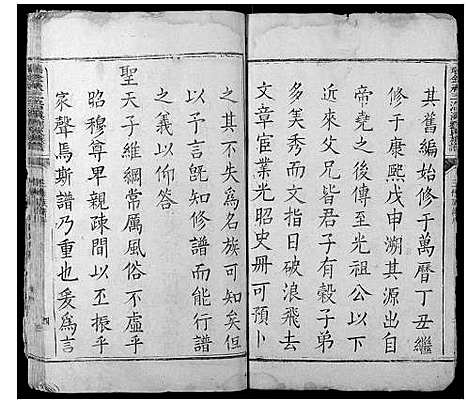 其舊編始修于萬曆丁丑繼
修于康熙戊申溯其源出自
帝堯之後傳至光祖公以下
近來父兄皆君子有穀子弟
多美秀而文指日破浪飛去
文章宦業光昭史冊可預卜
之其不失爲名族可知矣但
以予言旣知修譜而能行譜
之義以仰答
聖天子維綱常厲風俗不虛乎
昭穆尊卑親疎間以丕振乎
家聲焉斯譜乃重也爰爲言